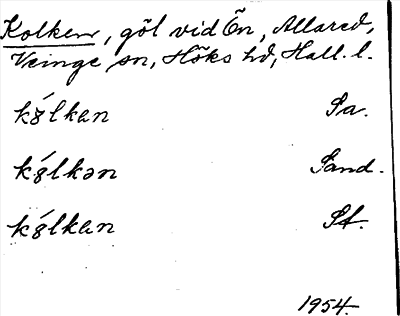 Kolken, göl vid Ön, Allared,
Veinge sn, Höks hd, Hall. l.
kó̱lken Sa.
kó̱lkən Sand.
kó̱lken St.
1954.